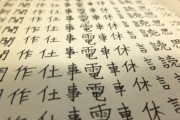 思思思思
読読読読読
言言言言言
休休休休休
車車車車車
電電電電電
事事事事事
仕仕仕仕
作作作作
聞聞聞